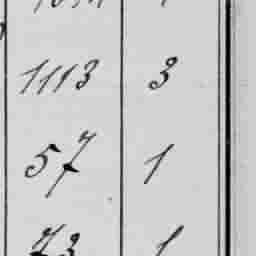 1113 3
57 1
73 1